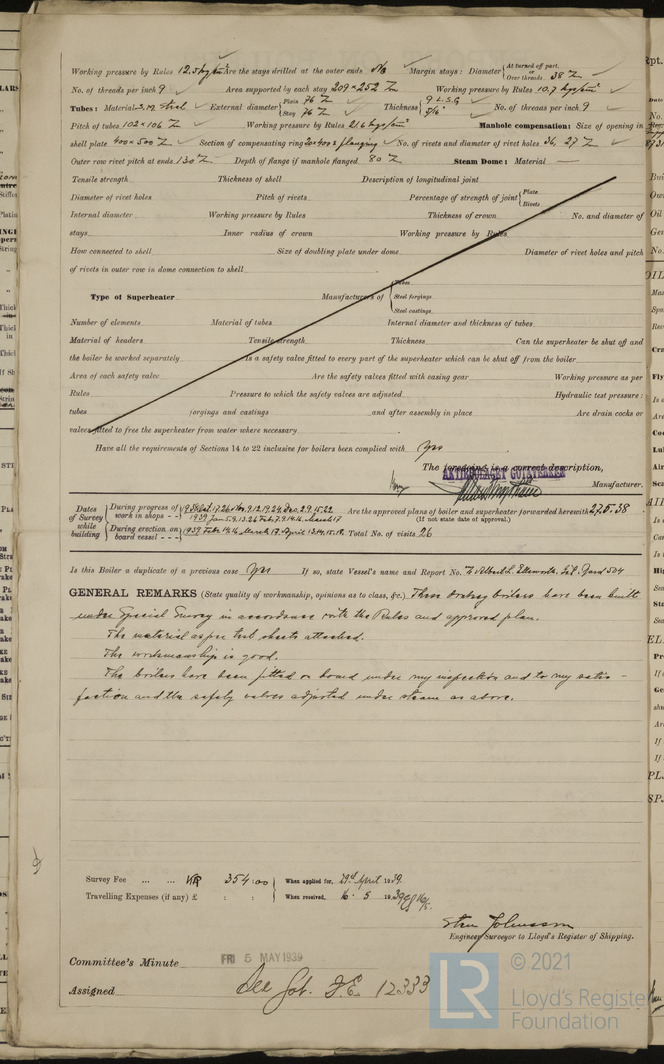 Working pressure by Rules 12.5 kg/cm² Are the stays drilled at the outer ends No Margin stays: Diameter { At turned off part. or Over threads. 38 m/m
No. of threads per inch 9 Area supported by each stay 209 × 252 m/m Working pressure by Rules 10.7 kgs/cm²
Tubes: Material S.M. Steel External diameter { Plain 76 m/m Stay 76 m/m Thickness { 9 L.S.G. 5/16" No. of threads per inch 9
Pitch of tubes 102 × 106 m/m Working pressure by Rules 21.6 kgs/cm² Manhole compensation: Size of opening in
shell plate 400 × 500 m/m Section of compensating ring 20×400 & flanging No. of rivets and diameter of rivet holes 36, 27 m/m
Outer row rivet pitch at ends 130 m/m Depth of flange if manhole flanged 80 m/m Steam Dome: Material —
Tensile strength Thickness of shell Description of longitudinal joint
Diameter of rivet holes Pitch of rivets Percentage of strength of joint { Plate Rivets
Internal diameter Working pressure by Rules Thickness of crown No. and diameter of
stays Inner radius of crown Working pressure by Rules
How connected to shell Size of doubling plate under dome Diameter of rivet holes and pitch
of rivets in outer row in dome connection to shell
Type of Superheater Manufacturers of { Tubes Steel forgings Steel castings
Number of elements Material of tubes Internal diameter and thickness of tubes
Material of headers Tensile strength Thickness Can the superheater be shut off and
the boiler be worked separately Is a safety valve fitted to every part of the superheater which can be shut off from the boiler
Area of each safety valve Are the safety valves fitted with easing gear Working pressure as per
Rules Pressure to which the safety valves are adjusted Hydraulic test pressure:
tubes forgings and castings and after assembly in place Are drain cocks or
valves fitted to free the superheater from water where necessary
Have all the requirements of Sections 14 to 22 inclusive for boilers been complied with Yes
The foregoing is a correct description,
AKTIEBOLAGET GÖTAVERKEN
Manufacturer.
Dates of Survey while building { During progress of work in shops - - { 1939 Jan. 5.9.13.26 Feb. 7.9.14.16. March 17
Are the approved plans of boiler and superheater forwarded herewith 27.5.38
(If not state date of approval.)
During erection on board vessel - - - { 1939 Feb. 14.16 March 17 April 13.14.15.18. Total No. of visits 26
Is this Boiler a duplicate of a previous case Yes If so, state Vessel's name and Report No. Albert L. Ellsworth. Yard 504
GENERAL REMARKS (State quality of workmanship, opinions as to class, &c.) These donkey boilers have been built
under Special Survey in accordance with the Rules and approved plan.
The material as per test sheets attached.
The workmanship is good.
The boilers have been fitted on board under my inspection and to my satis-
faction and the safety valves adjusted under steam as above.
Survey Fee ... ... KR 354:00 When applied for, 29th April 1939.
Travelling Expenses (if any) £ : : When received, 16. 5 1939
Sten Johnsson
Engineer Surveyor to Lloyd's Register of Shipping.
Committee's Minute FRI 5 MAY 1939
Assigned See Got. F.E. 12333
© 2021
LR Lloyd's Register
Foundation